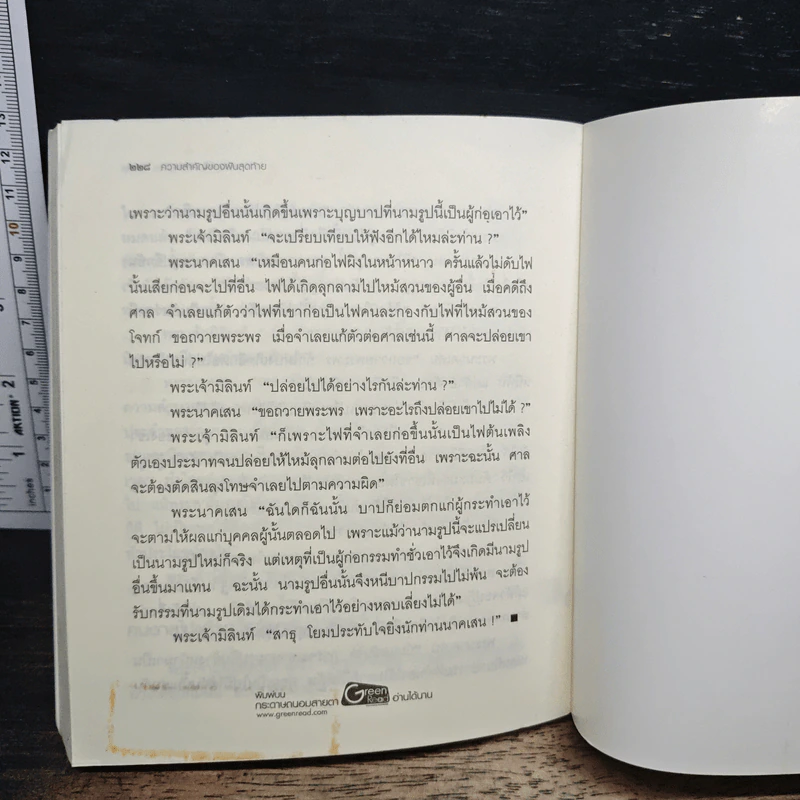 ๒๒๘ ความสำคัญของฟืนสุดท้าย
เพราะว่านามรูปอื่นนั้นเกิดขึ้นเพราะบุญบาปที่นามรูปนี้เป็นผู้ก่อเอาไว้”
พระเจ้ามิลินท์ “จะเปรียบเทียบให้ฟังอีกได้ไหมล่ะท่าน ?”
พระนาคเสน “เหมือนคนก่อไฟผิงในหน้าหนาว ครั้นแล้วไม่ดับไฟ
นั้นเสียก่อนจะไปที่อื่น ไฟได้เกิดลุกลามไปไหม้สวนของผู้อื่น เมื่อคดีถึง
ศาล จำเลยแก้ตัวว่าไฟที่เขาก่อเป็นไฟคนละกองกับไฟที่ไหม้สวนของ
โจทก์ ขอถวายพระพร เมื่อจำเลยแก้ตัวต่อศาลเช่นนี้ ศาลจะปล่อยเขา
ไปหรือไม่ ?”
พระเจ้ามิลินท์ “ปล่อยไปได้อย่างไรกันล่ะท่าน ?”
พระนาคเสน “ขอถวายพระพร เพราะอะไรถึงปล่อยเขาไปไม่ได้ ?”
พระเจ้ามิลินท์ “ก็เพราะไฟที่จำเลยก่อขึ้นนั้นเป็นไฟต้นเพลิง
ตัวเองประมาทจนปล่อยให้ไหม้ลุกลามต่อไปยังที่อื่น เพราะฉะนั้น ศาล
จะต้องตัดสินลงโทษจำเลยไปตามความผิด”
พระนาคเสน “ฉันใดก็ฉันนั้น บาปก็ย่อมตกแก่ผู้กระทำเอาไว้
จะตามให้ผลแก่บุคคลผู้นั้นตลอดไป เพราะแม้ว่านามรูปนี้จะแปรเปลี่ยน
เป็นนามรูปใหม่ก็จริง แต่เหตุที่เป็นผู้ก่อกรรมทำชั่วเอาไว้จึงเกิดมีนามรูป
อื่นขึ้นมาแทน ฉะนั้น นามรูปอื่นนั้นจึงหนีบาปกรรมไปไม่พ้น จะต้อง
รับกรรมที่นามรูปเดิมได้กระทำเอาไว้อย่างหลบเลี่ยงไม่ได้”
พระเจ้ามิลินท์ “สาธุ โยมประทับใจยิ่งนักท่านนาคเสน !” ■
พิมพ์บน
กระดาษถนอมสายตา Green Read อ่านได้นาน
www.greenread.com